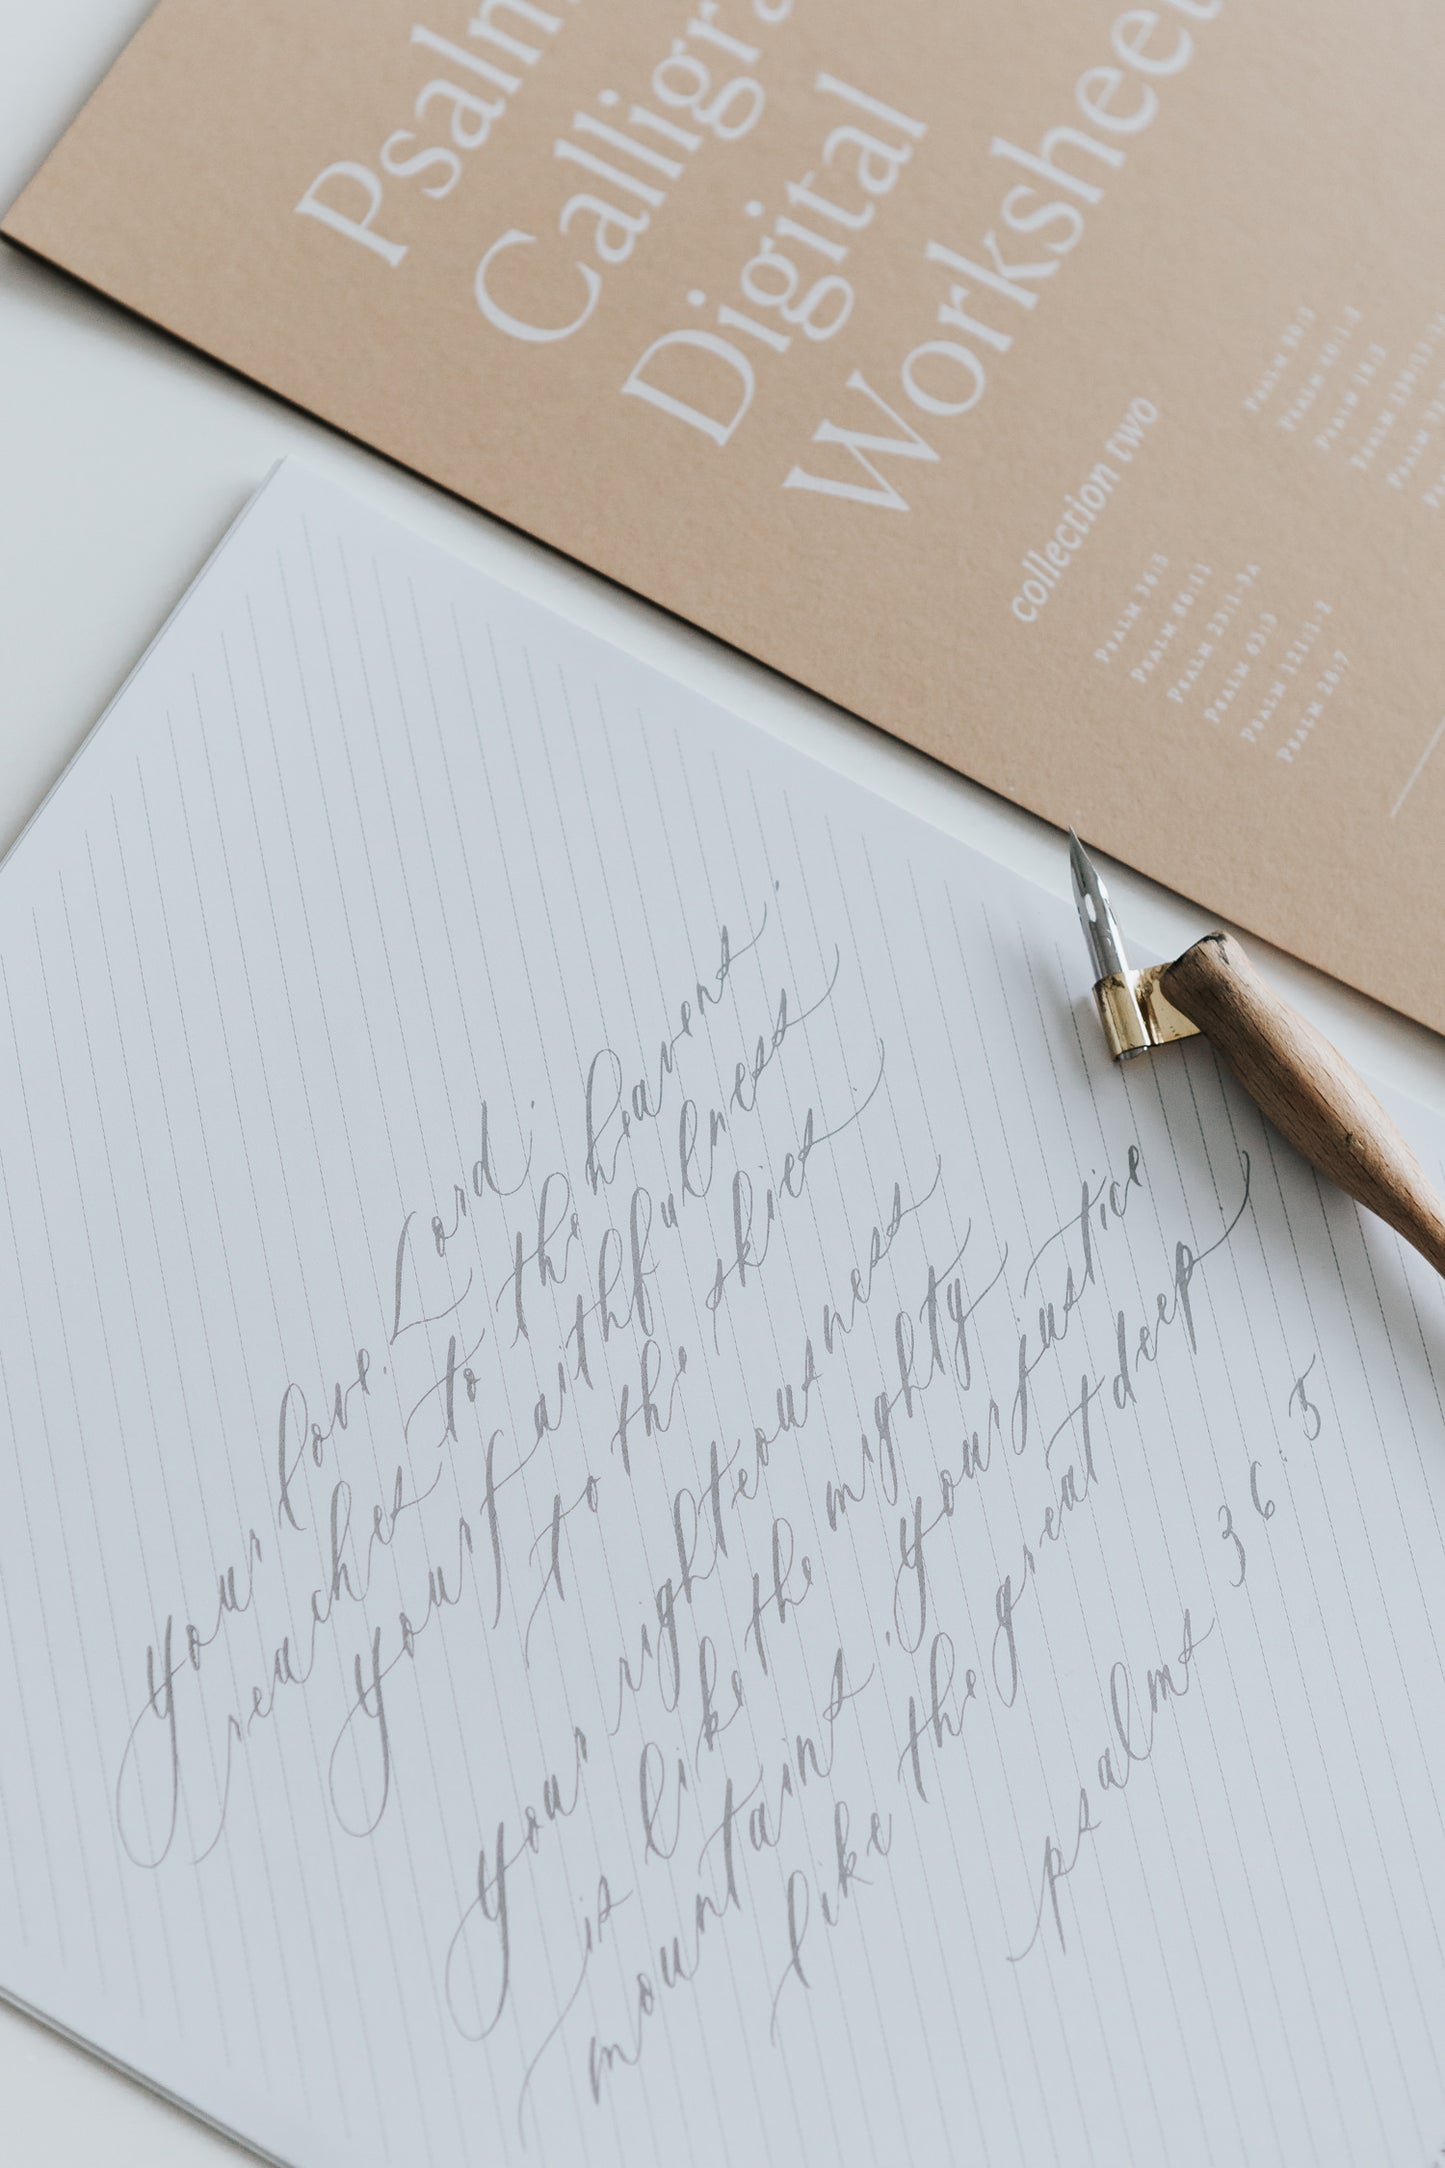 Psalm
Calligra
Digital
Worksheet
collection two
PSALM 36:5
PSALM 86:11
PSALM 23:1-3A
PSALM 63:3
PSALM 121:1-2
PSALM 28:7
your love, Lord,
reaches to the heavens,
your faithfulness
to the skies.
your righteousness
is like the mighty
mountains, your justice
like the great deep
psalms 36:5